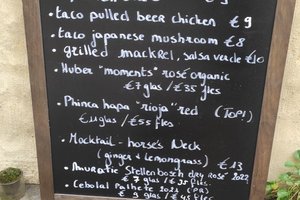 • taco pulled beer chicken €9
• taco japanese mushroom €8
• grilled mackrel, salsa verde €10
• Huber "moments" rosé organic
€7 glas / €35 fles
• Phinca hapa "rioja" red (TOP!)
€11 glas / €55 fles
• Mocktail - horse's Neck
(ginger + lemongrass) €13
• Muratie Stellenbosch dry rosé 2022
€7 glas / €35 fles.
• Cebolal Palhete 2021 (PR)
€9 glas / €45 fles